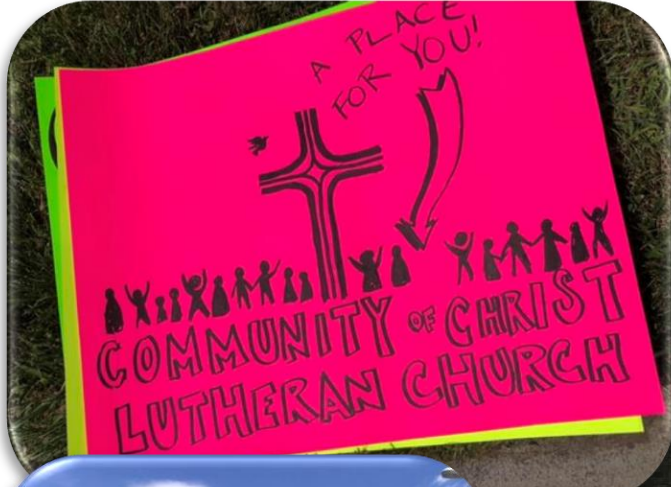 A PLACE
FOR YOU!
COMMUNITY OF CHRIST
LUTHERAN CHURCH